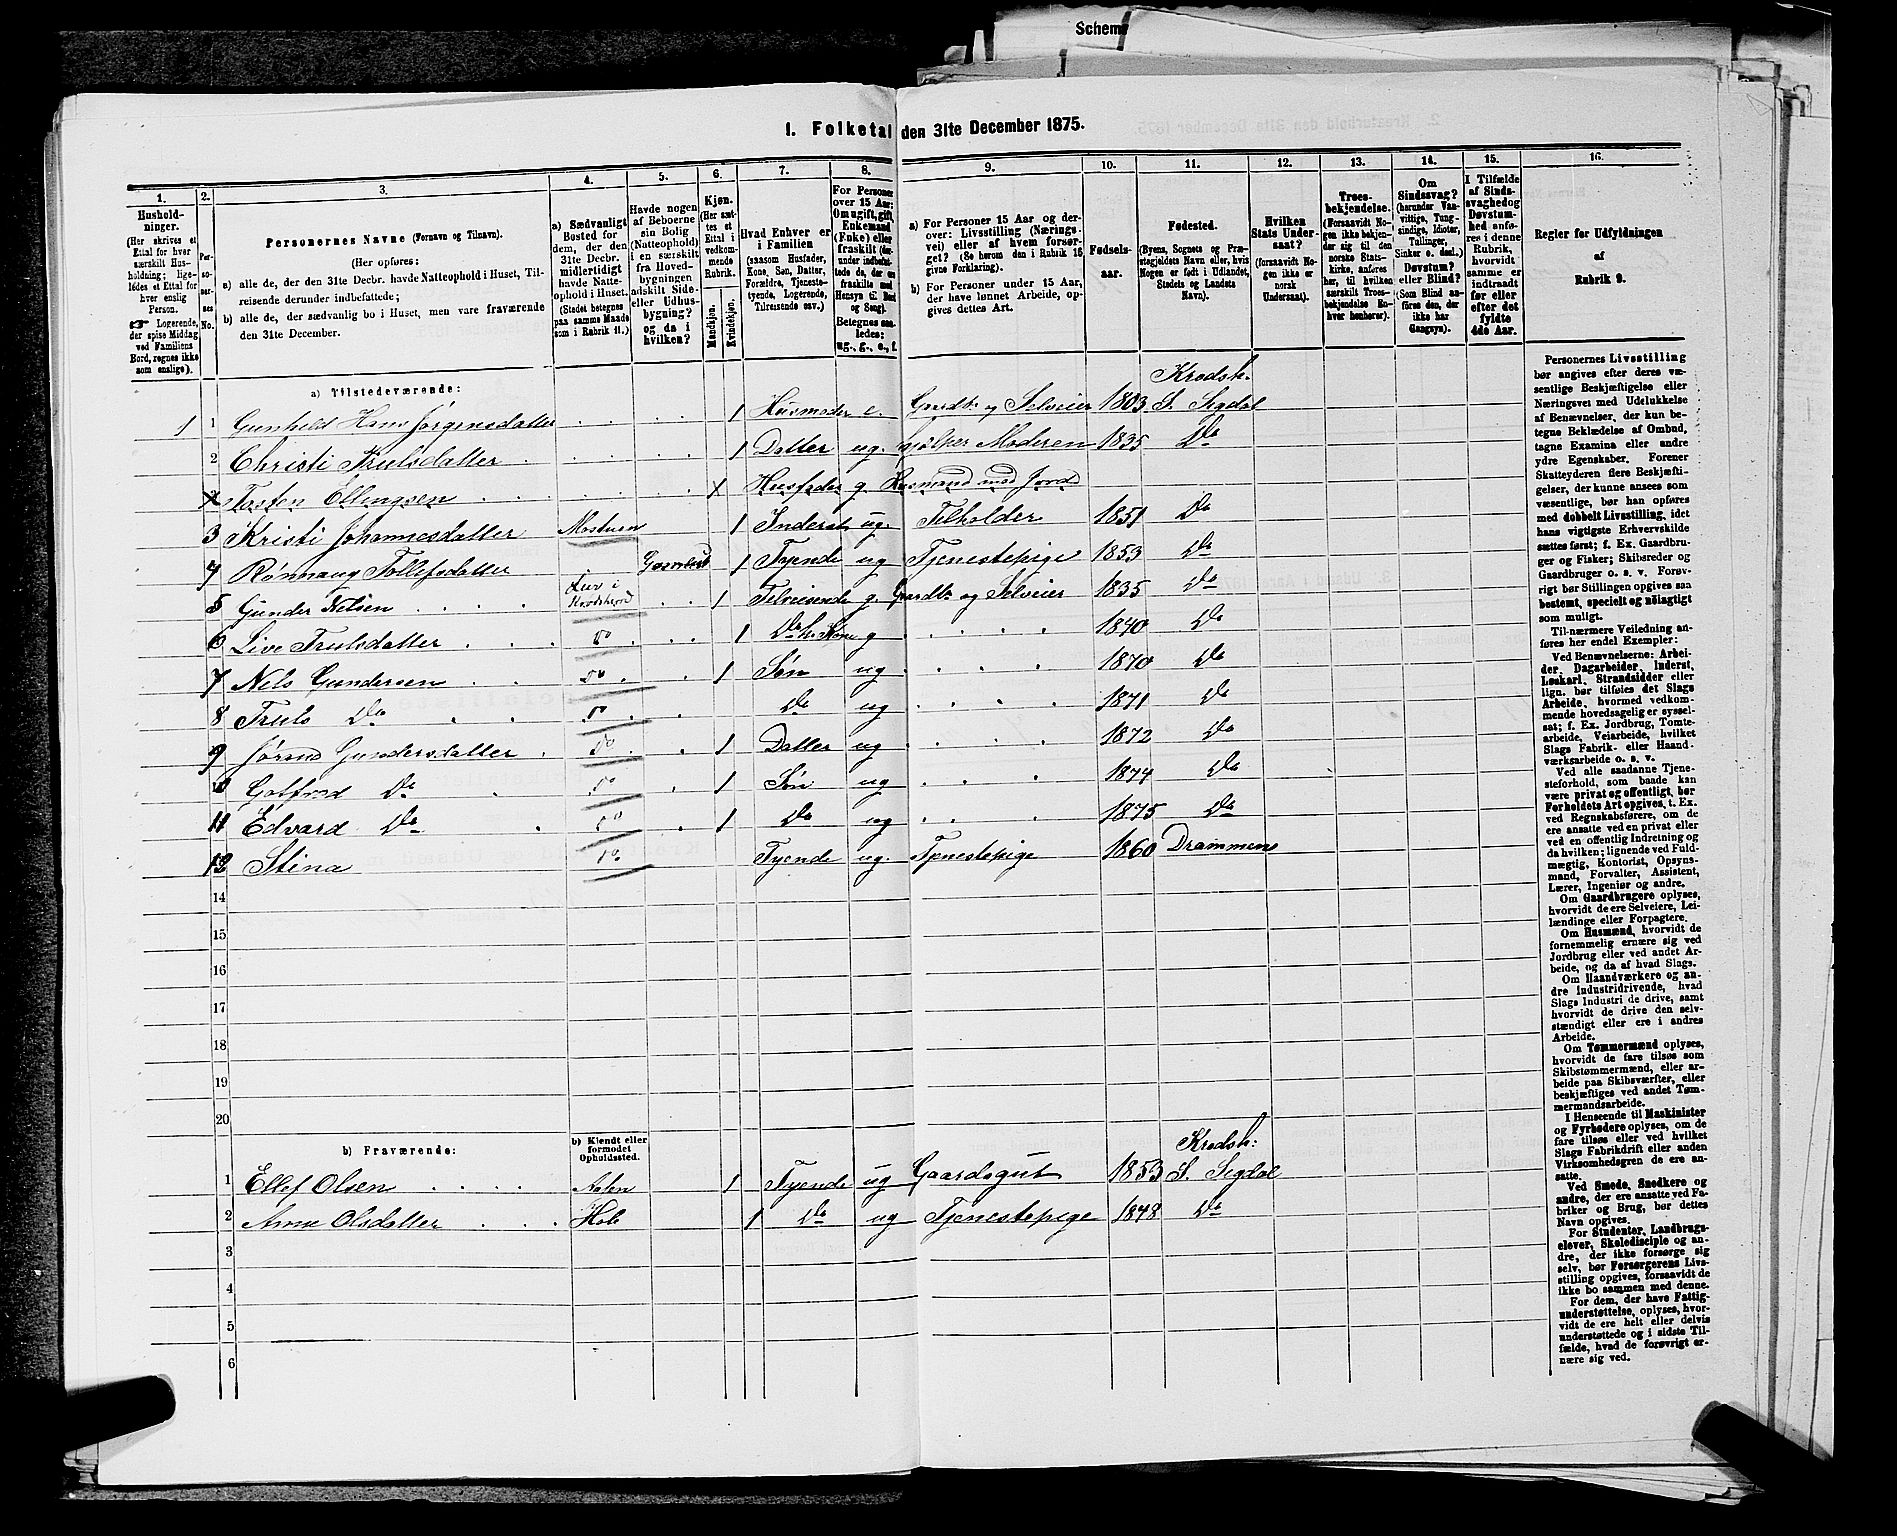 Schema
1. Folketal den 31te December 1875.
1. 2. 3. 4. 5. 6. 7. 8. 9. 10. 11. 12. 13. 14. 15. 16.
Hushold-
ninger.
(Her skrives et
Ettal for hver
særskilt Hus-
holdning; lige-
ledes et Ettal for
hver enslig
Person.
☛ Logerende,
der spise Middag
ved Familiens
Bord, regnes ikke
som enslige).
Per-
so-
ner-
nes
No.
Personernes Navne (Fornavn og Tilnavn).
(Her opføres:
a) alle de, der den 31te Decbr. havde Natteophold i Huset, Til-
reisende derunder indbefattede;
b) alle de, der sædvanlig bo i Huset, men vare fraværende
den 31te December.
a) Sædvanligt
Bosted for
dem, der den
31te Decbr.
midlertidigt
havde Natte-
ophold i Huset.
(Stedet betegnes
paa samme Maade
som i Rubrik 11.)
Havde nogen
af Beboerne
sin Bolig
(Natteophold)
i en særskilt
fra Hoved-
bygningen
adskilt Side-
eller Udhus-
bygning?
og da i
hvilken?
Kjøn.
(Her sæt-
tes et
Ettal i
vedkom-
mende
Rubrik.
Mandkjøn.
Kvindekjøn.
Hvad Enhver er
i Familien
(saasom Husfader,
Kone, Søn, Datter,
Forældre, Tjeneste-
tyende, Logerende,
Tilreisende osv.)
For Personer
over 15 Aar:
Om ugift, gift,
Enkemand
(Enke) eller
fraskilt (der-
under indbefat-
tede de, der ere
fraskilte med
Hensyn til Bord
og Seng).
Betegnes saa-
ledes:
ug., g., e., f.
a) For Personer 15 Aar og der-
over: Livsstilling (Nærings-
vei) eller af hvem forsør-
get (Se herom den i Rubrik 16
givne Forklaring).
b) For Personer under 15 Aar,
der have lønnet Arbeide, op-
gives dettes Art.
Fødsels-
aar.
Fødested.
(Byens, Sognets og Præ-
stegjeldets Navn eller, hvis
Nogen er født i Udlandet,
Stedets og Landets
Navn).
Hvilken
Stats Under-
saat?
(forsaavidt No-
gen ikke er
norsk
Undersaat).
Troes-
bekjendelse.
(Forsaavidt No-
gen ikke bekjen-
der sig til den
norske Stats-
kirke, anføres
her, til hvilken
særskilt Troes-
bekjendelse En-
hver henhører).
Om
Sindssvag?
(herunder Van-
vittige, Tung-
sindige, Idioter,
Tullinger,
Sinker o. desl.).
Døvstum?
eller Blind?
(Som Blind an-
føres den, der
ikke har
Gangsyn).
I Tilfælde
af Sinds-
svaghed og
Døvstum-
hed anfø-
res i denne
Rubrik,
hvorvidt
samme er
indtraadt
før eller
efter det
fyldte
4de Aar.
Regler for Udfyldningen
af
Rubrik 9.
a) Tilstedeværende:
1 1 Gunhild Hans Jørgensdatter 1 Husmoder e. Gaardb. og Selveier 1803 Krødsh. S. Sigdal
2 Christi Trulsdatter 1 Datter ug. hjælper Moderen 1835 Do
Tosten Ellingsen x Husfader g. Husmand med Jord
3 Kristi Johannesdatter 1 Inderst ug. 1851 Do
4 Rønnaug Tollefsdatter 1 Tyende ug Tjenestepige 1853 Do
5 Gunder Nilsen Lier i 1 Tilreisende g. Gaardb og Selveier 1835 Do
6 Live Trulsdatter Do 1 Do h. Kone g 1840 Do
7 Nels Gundersen Do 1 Søn ug 1870 Do
8 Truls Do Do Do ug 1871 Do
9 Jørand Gundersdatter Do 1 Datter ug 1872 Do
10 Gotfred Do Do 1 Søn ug 1874 Do
11 Edvard Do Do 1 Do ug 1875 Do
12 Stina Do Tyende ug. Tjenestepige 1860 Drammen
14
15
16
17
18
19
20
b) Fraværende:
b) Kjendt eller
formodet
Opholdssted.
1 Ellef Olsen 1 Tyende ug Gaardsgut 1853 Krødsh: S. Sigdal
2 Anne Olsdatter Hole 1 Do ug Tjenestepige 1848 Do
3
4
5
6
Personernes Livsstilling
bør angives efter deres væ-
sentlige Beskjæftigelse eller
Næringsvei med Udelukkelse
af Benævnelser, der kun be-
tegne Beklædelse af Ombud,
tagne Examina eller andre
ydre Egenskaber. Forener
Skatteyderen flere Beskjæfti-
gelser, der kunne ansees som
væsentlige, bør han opføres
med dobbelt Livsstilling, idet
hans vigtigste Erhvervskilde
sættes først; f. Ex. Gaardbru-
ger og Fisker; Skibsreder og
Gaardbruger o. s. v. Forøv-
rigt bør Stillingen opgives saa
bestemt, specielt og nøiagtigt
som muligt.
Til nærmere Veiledning an-
føres her endel Exempler:
Ved Benævnelserne: Arbei-
der, Dagarbeider, Inderst,
Løskarl, Strandsidder eller
lign. bør tilføies det Slags
Arbeide, hvormed vedkom-
mende hovedsagelig er syssel-
sat; f. Ex. Jordbrug, Tomte-
arbeide, Veiarbeide, hvilket
Slags Fabrik- eller Haand-
værksarbeide o. s. v.
Ved alle saadanne Tjene-
steforhold, som baade kan
være privat og offentligt, bør
Forholdets Art opgives, t. Ex.
ved Regnskabsførere, om de
ere ansatte ved en privat eller
ved en offentlig Indretning og
da hvilken; lignende ved Fuld-
mægtig, Kontorist, Opsyns-
mand, Forvalter, Assistent,
Lærer, Ingeniør og andre.
Om Gaardbrugere oplyses,
hvorvidt de ere Selveiere, Lei-
lændinge eller Forpagtere.
Om Husmænd, hvorvidt de
fornemmelig ernære sig ved
Jordbrug eller ved andet Ar-
beide, og da af hvad Slags.
Om Haandværkere og an-
dre Industridrivende, hvad
Slags Industri de drive, samt
hvorvidt de drive den selv-
stændigt eller ere i andres
Arbeide.
Om Tømmermænd oplyses,
hvorvidt de fare tilsøs som
Skibstømmermænd, eller ar-
beide paa Skibsværfter, eller
beskjæftiges ved andet Tøm-
mermandsarbeide.
I Henseende til Maskinister
og Fyrbødere oplyses, om de
fare tilsøs eller ved hvilket
Slags Fabrikdrift eller anden
Virksomhedsgren de ere an-
satte.
Ved Smede, Snedkere og
andre, der ere ansatte ved Fa-
briker og Brug, bør dettes
Navn opgives.
For Studenter, Landbrugs-
elever, Skoledisciple og an-
dre, der ikke forsørge sig
selv, bør Forsørgerens Livs-
stilling opgives, forsaavidt de
ikke bo sammen med denne.
For dem, der have Fattig-
understøttelse, oplyses, hvor-
vidt de ere helt eller delvis
understøttede og i sidste Til-
fælde, hvad de forøvrigt er-
nære sig ved.